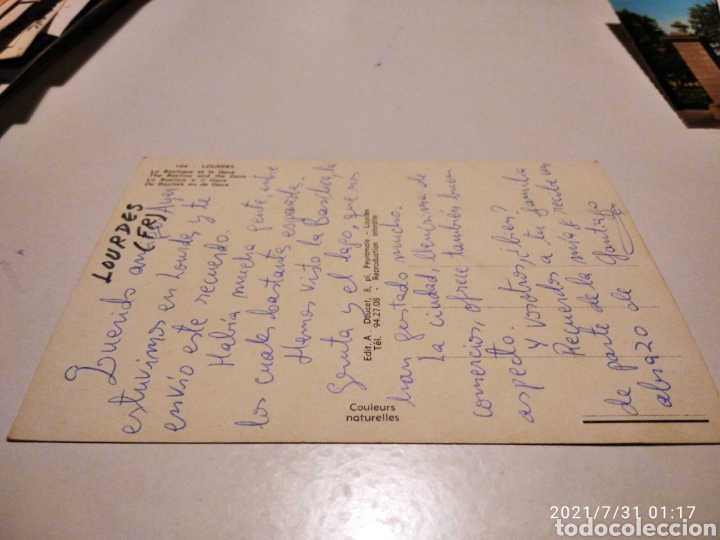 104 - LOURDES
La Basilique et le Gave
The Basilica and the Gave
La Basilica e il Gave
De Basiliek en de Gave
LOURDES
(FR)
Querido amigo: Ayer
estuvimos en Lourdes, y te
envío este recuerdo.
Había mucha gente, entre
los cuales bastante española.
Hemos visto la Basílica, la
Gruta y el lago, que nos
han gustado mucho.
La ciudad, llenísima de
comercios, ofrece también buen
aspecto.
Y vosotros, ¿bien?
Recuerdos a tu familia
de parte de la mía y recibe un
abrazo de Santiago
Edit. A. Doucet, 8, pl. Peyramale - Lourdes
Tél. 94.27.08 - Reproduction interdite
Couleurs
naturelles
2021/7/31 01:17
todocoleccion